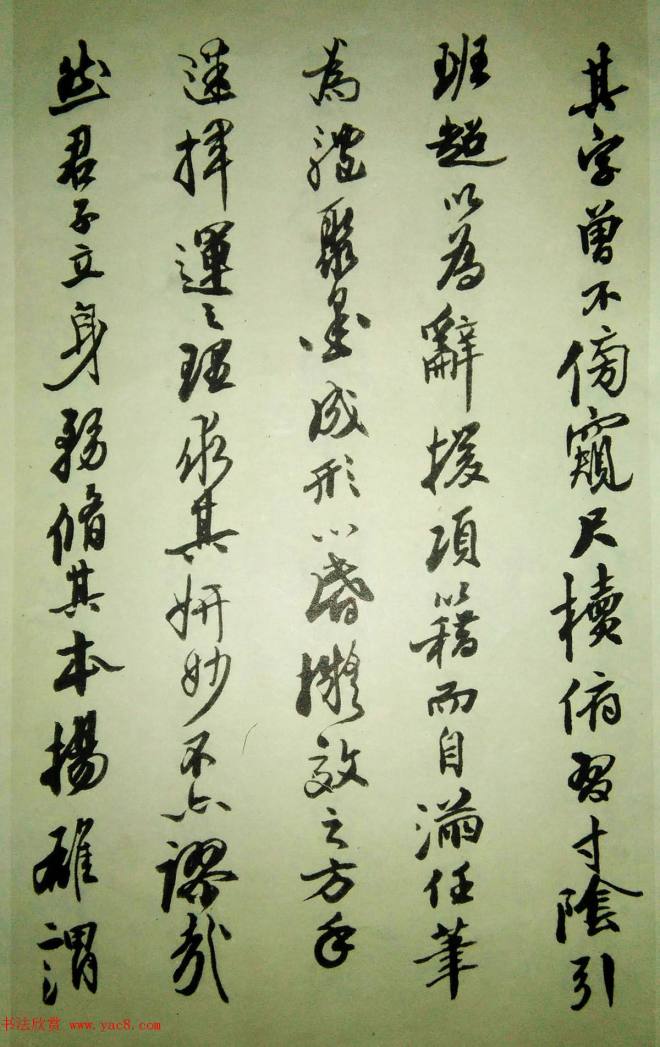 其字曾不傍窺尺牘俯習寸陰引
班超以為辭援項籍而自滿任筆
為體聚墨成形心昏擬效之方手
迷揮運之理求其妍妙不亦謬哉
然君子立身務脩其本揚雄謂
书法欣赏 www.yac8.com